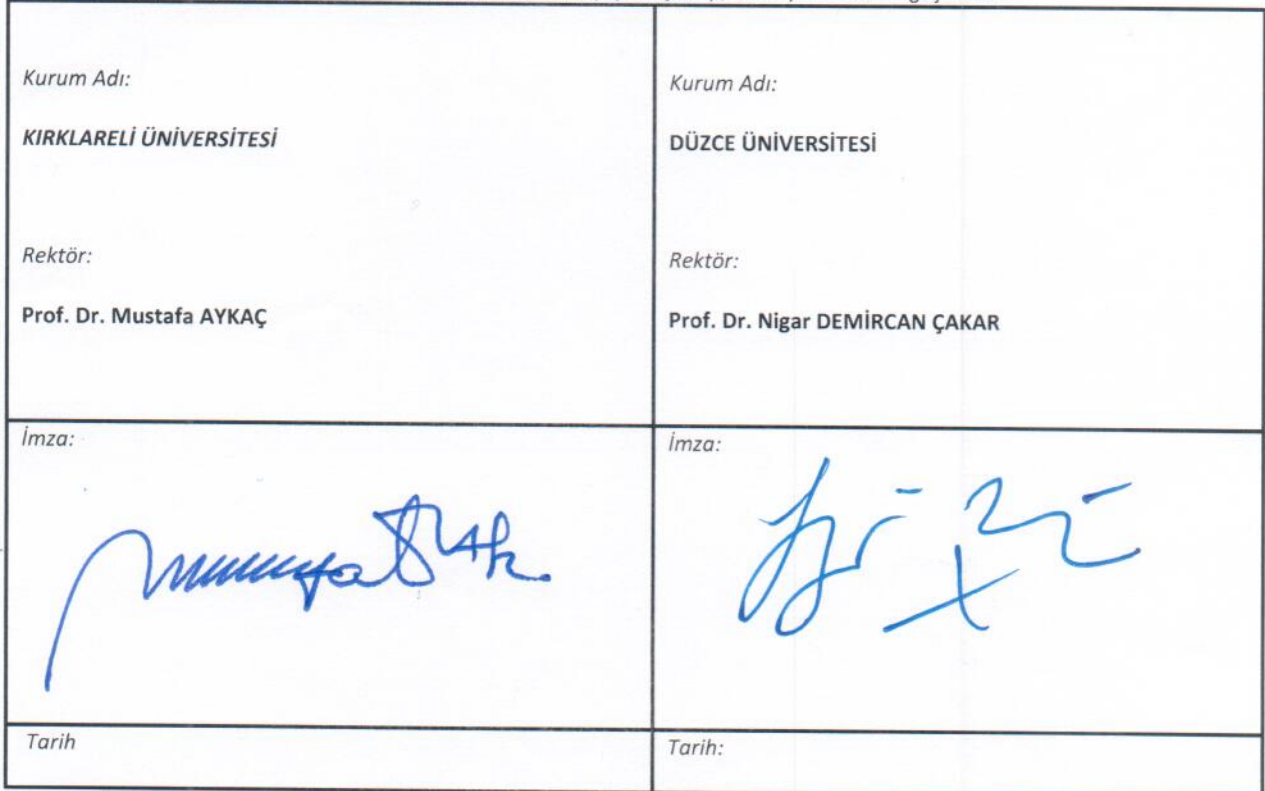 Kurum Adı:
KIRKLARELİ ÜNİVERSİTESİ
Rektör:
Prof. Dr. Mustafa AYKAÇ
İmza:
Tarih
Kurum Adı:
DÜZCE ÜNİVERSİTESİ
Rektör:
Prof. Dr. Nigar DEMİRCAN ÇAKAR
İmza:
Tarih: